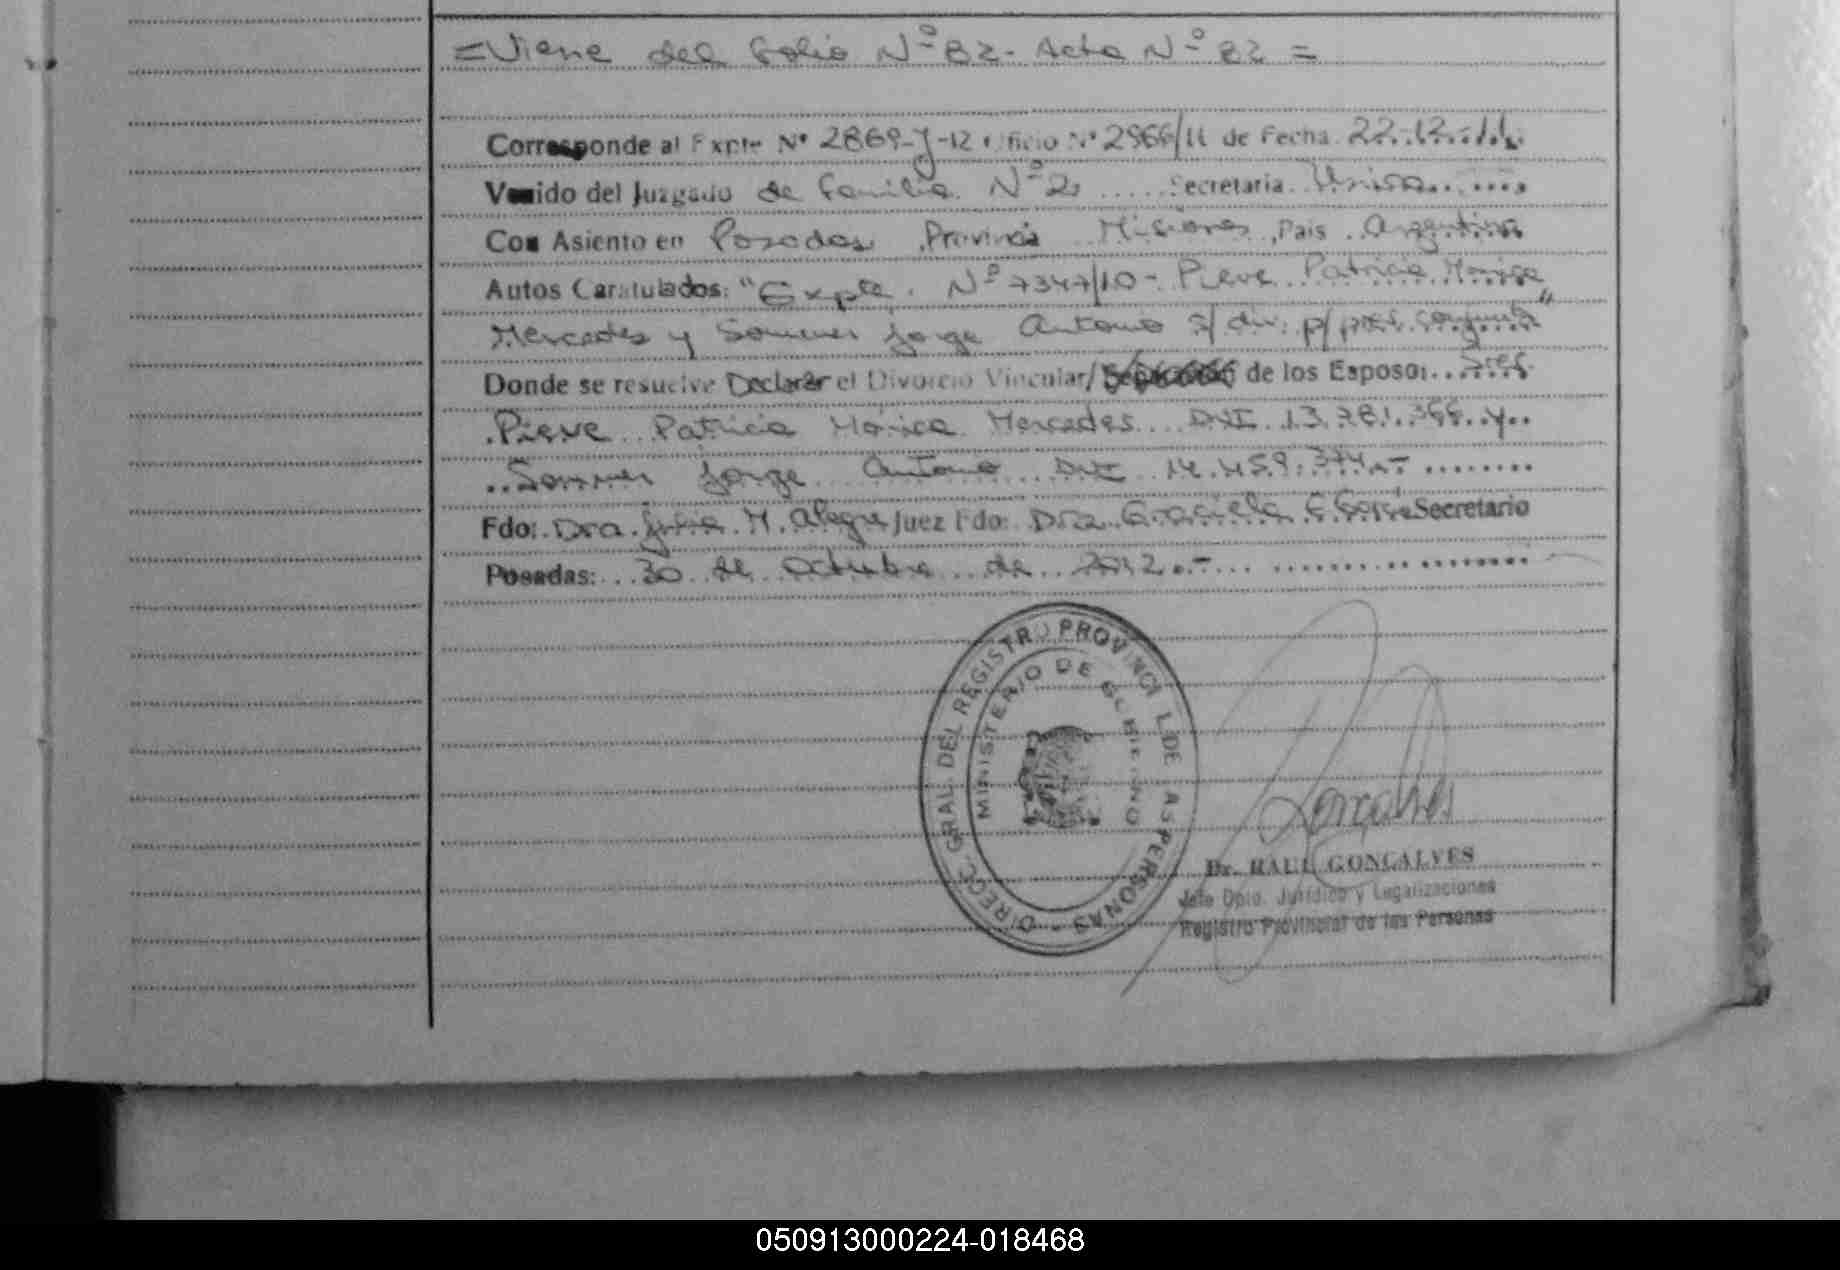 = Viene del folio Nº 82 - Acta Nº 82 =
Corresponde al Expte Nº 2869-J-12 Oficio Nº 2966/11 de Fecha 22.12.11.
Venido del Juzgado de Familia Nº 2. Secretaria Unica
Con Asiento en Posadas, Provincia Misiones, Pais Argentina
Autos Caratulados: "Expte. Nº 7347/10 - Pieve Patricia Monica
Mercedes y Sommer Jorge Antonio s/ div. p/ pres. conjunta"
Donde se resuelve Declarar el Divorcio Vincular/ de los Esposos Sres.
Pieve Patricia Monica Mercedes DNI 13.781.366 y
Sommer Jorge Antonio DNI 14.459.374.-
Fdo: Dra. Julia M. Alegre Juez Fdo: Dra. Graciela Secretario
Posadas: 30 de Octubre de 2012.-
DIRECC. GRAL. DEL REGISTRO PROVINCI L DE AS PERSONAS -
MINISTERIO DE GOBIERNO
Goncalves
Dr. RAUL GONCALVES
Jefe Dpto. Jurídico y Legalizaciones
Registro Provincial de las Personas
050913000224-018468